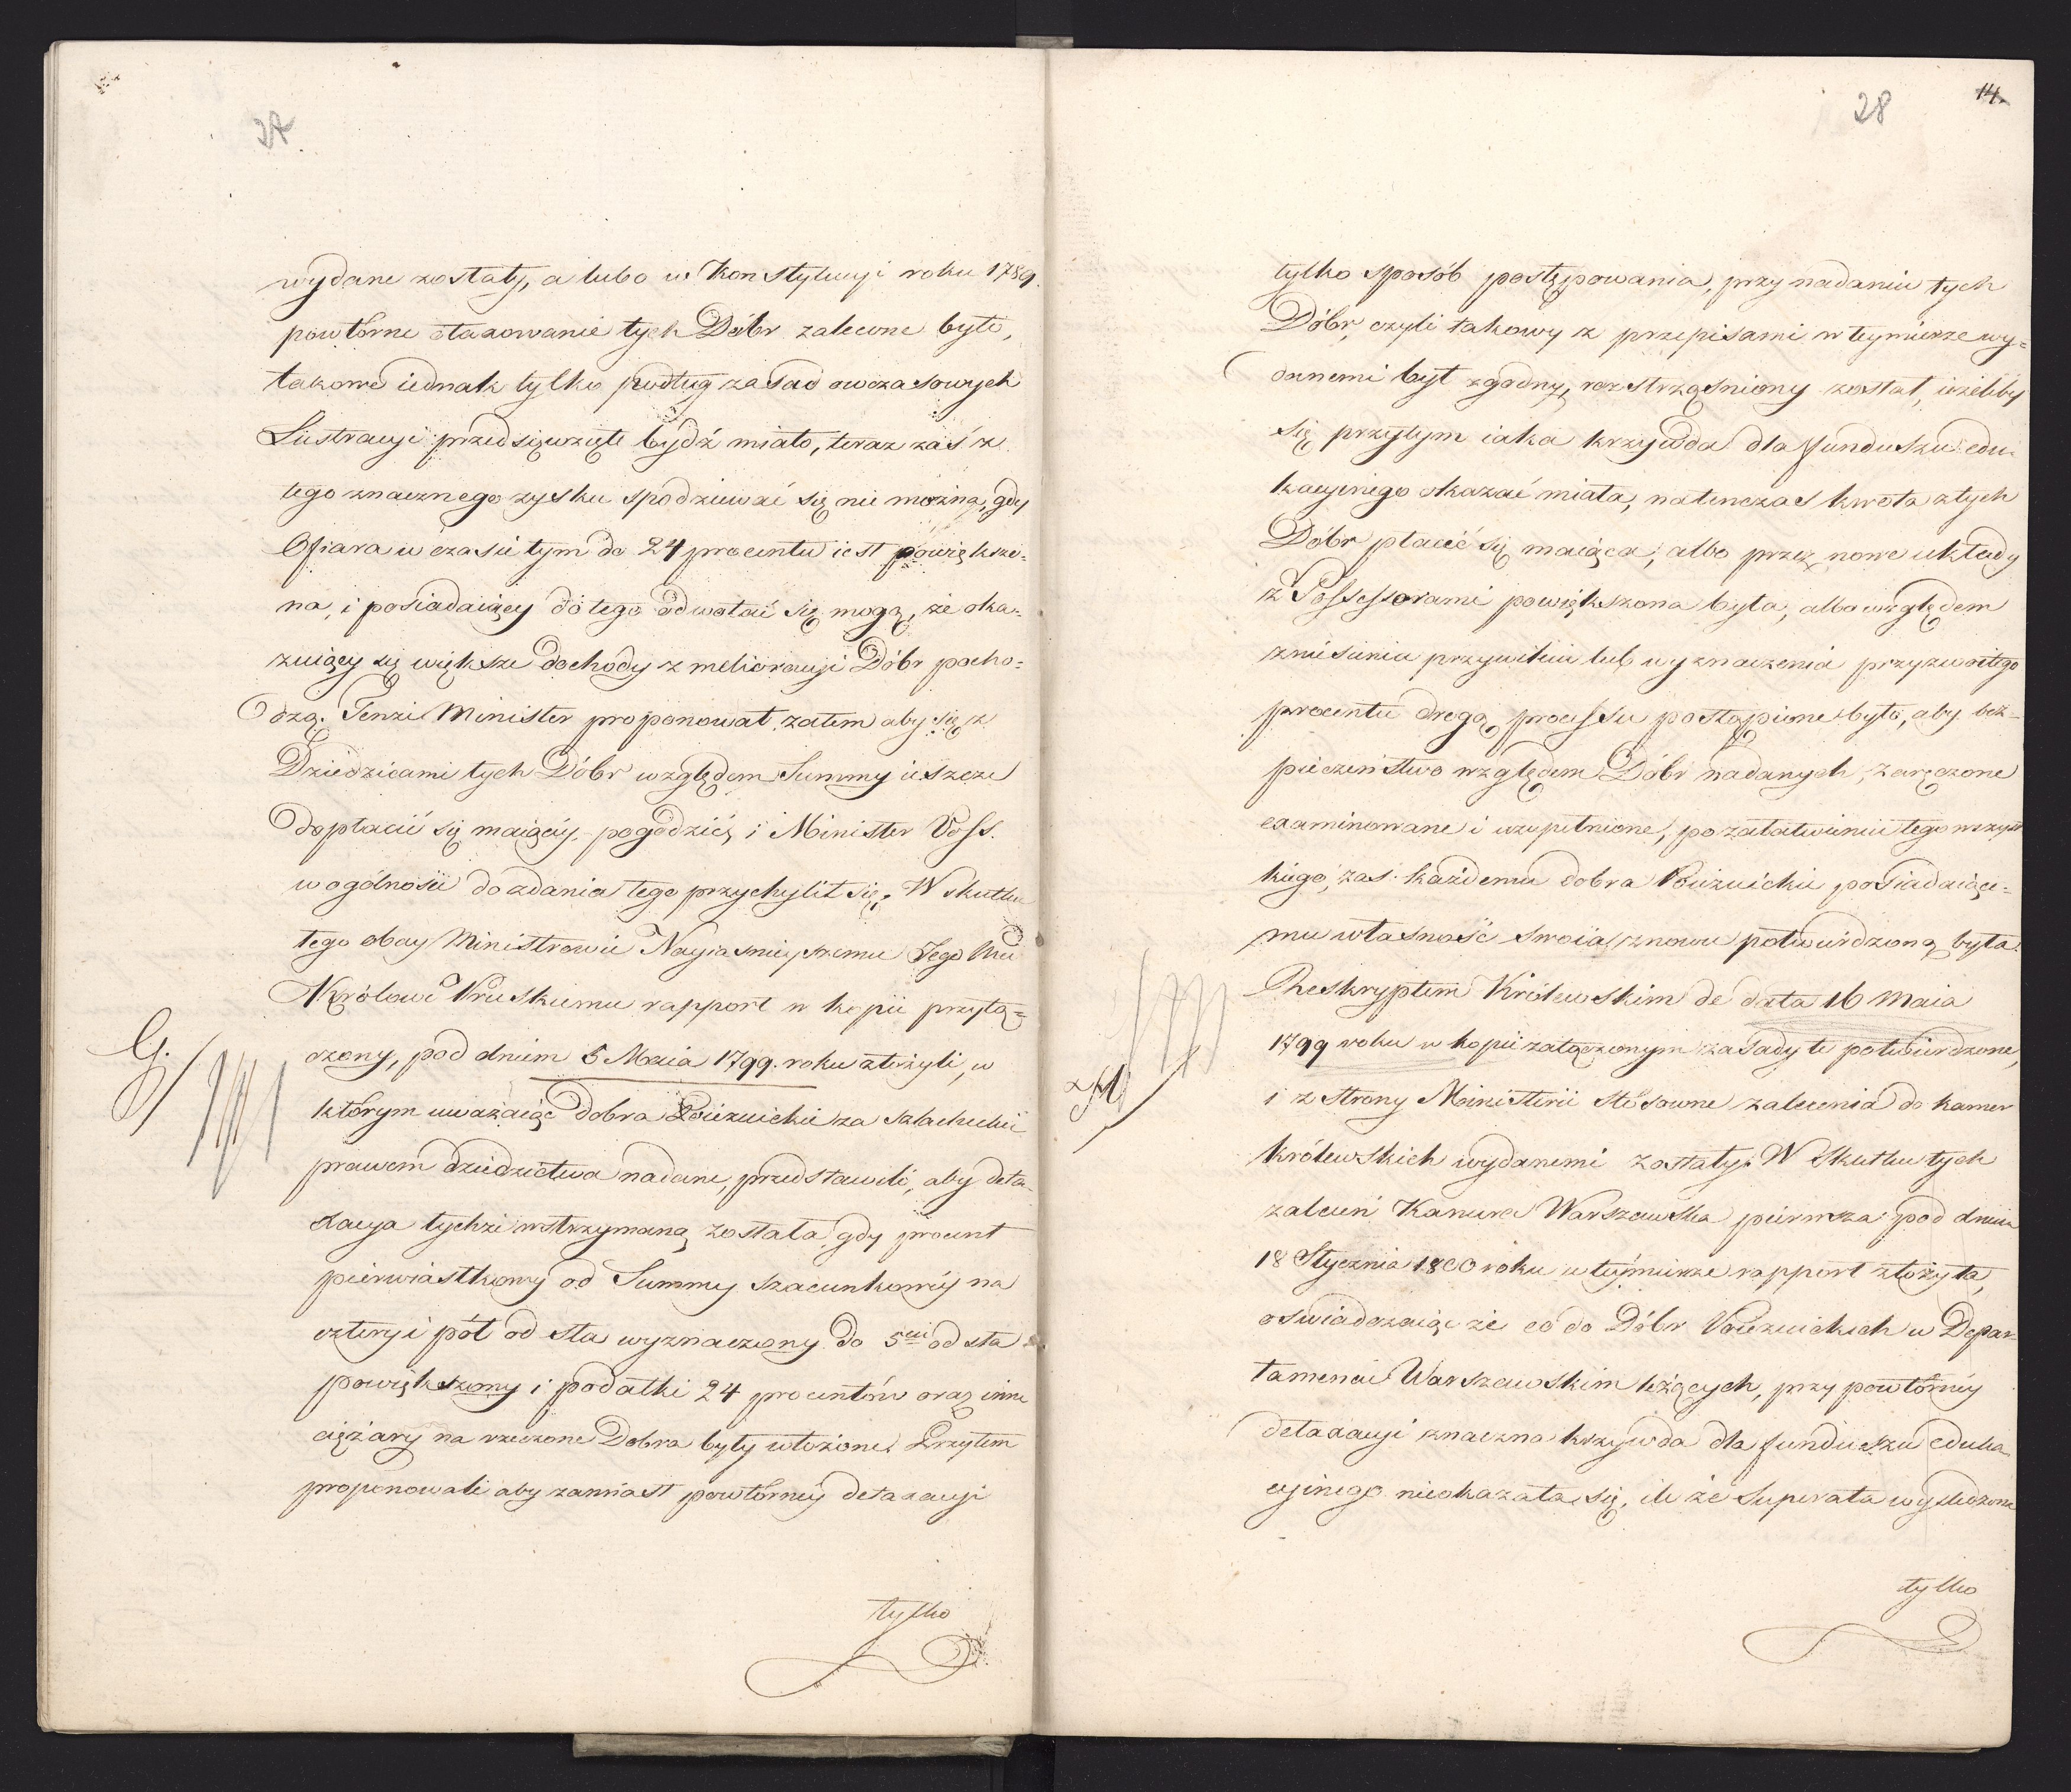 27.
wydane zostały, a lubo w Konstytucyi roku 1789.
powtórne otaxowanie tych Dóbr zalecone było,
takowe iednak tylko podług zasad owczasowych
Lustracyi przedsięwzięte bydź miało, teraz zaś z
tego znacznego zysku spodziewać się nie można, gdy
Ofiara w czasie tym do 24 procentu iest powiększo=
na, i posiadaiący do tego odwołać się mogą, że oka=
zuiący się większe dochody z melioracyi Dóbr pocho=
dzą. Tenże Minister proponował zatem aby się z
Dziedzicami tych Dóbr względem Summy ieszcze
dopłacić się maiącéy pogodzić, i Minister Voss.
w ogólności do zdania tego przychylił się. W skutku
tego obay Ministrowie Nayiaśnieyszemu Jego Mci
Królowi Pruskiemu rapport w kopii przyłą=
G.
czony, pod dniem 5 Maia 1799. roku złożyli, w
którym uważaiąc dobra Poiezuickie za szlacheckie
prawem dziedzictwa nadane, przedstawili, aby deta=
xacya tychże wstrzymaną została gdy procent
pierwiastkowy od Summy szacunkowéy na
cztery i pół od sta wyznaczony do 5ciu od sta
powiększony i podatki 24 procentów oraz inne
ciężary na rzeczone Dobra były włożone. Przytem
proponowali aby zamiast powtórnéy detaxacyi
tylko
28
14.
tylko sposób postępowania, przy nadaniu tych
Dóbr, czyli takowy z przepisami w teymierze wy=
danemi był zgodny, roztrząśniony został, ieżeliby
się przytym iaka krzywda dla funduszu edu=
kacyinego okazać miała, natenczas kwota z tych
Dóbr płacić się maiąca, albo przez nowe układy
z Possessorami powiększona była, albo względem
zniesienia przywileiu lub wyznaczenia przyzwoitego
procentu drogą processu postąpione było, aby bez=
pieczeństwo względem Dóbr nadanych, zaręczone
examinowane i uzupełnione, po załatwieniu tego wszyst
kiego, zaś każdemu dobra Poiezuickie posiadaiące=
mu własność swoia znowu potwierdzoną była.
Reskryptem Królewskim de data 16 Maia
1799 roku w kopii załączonym zasady te potwierdzone,
i z strony Ministerii stósowne zalecenia do kamer
królewskich wydanemi zostały. W skutku tych
zaleceń Kamera Warszawska pierwsza pod dniem
18 Stycznia 1800 roku w teymierze rapport złożyła,
oświadczaiąc że co do Dóbr Poiezuickich w Depar=
tamencie Warszawskim leżących, przy powtórnéy
detaxacyi znaczna krzywda dla funduszu eduka
cyinego nieokazała się, ile że Superata wyśledzona
tylko